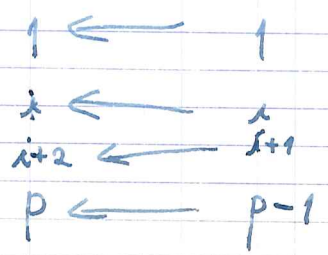 1 ← 1
i ← i
i+2 ← i+1
p ← p-1